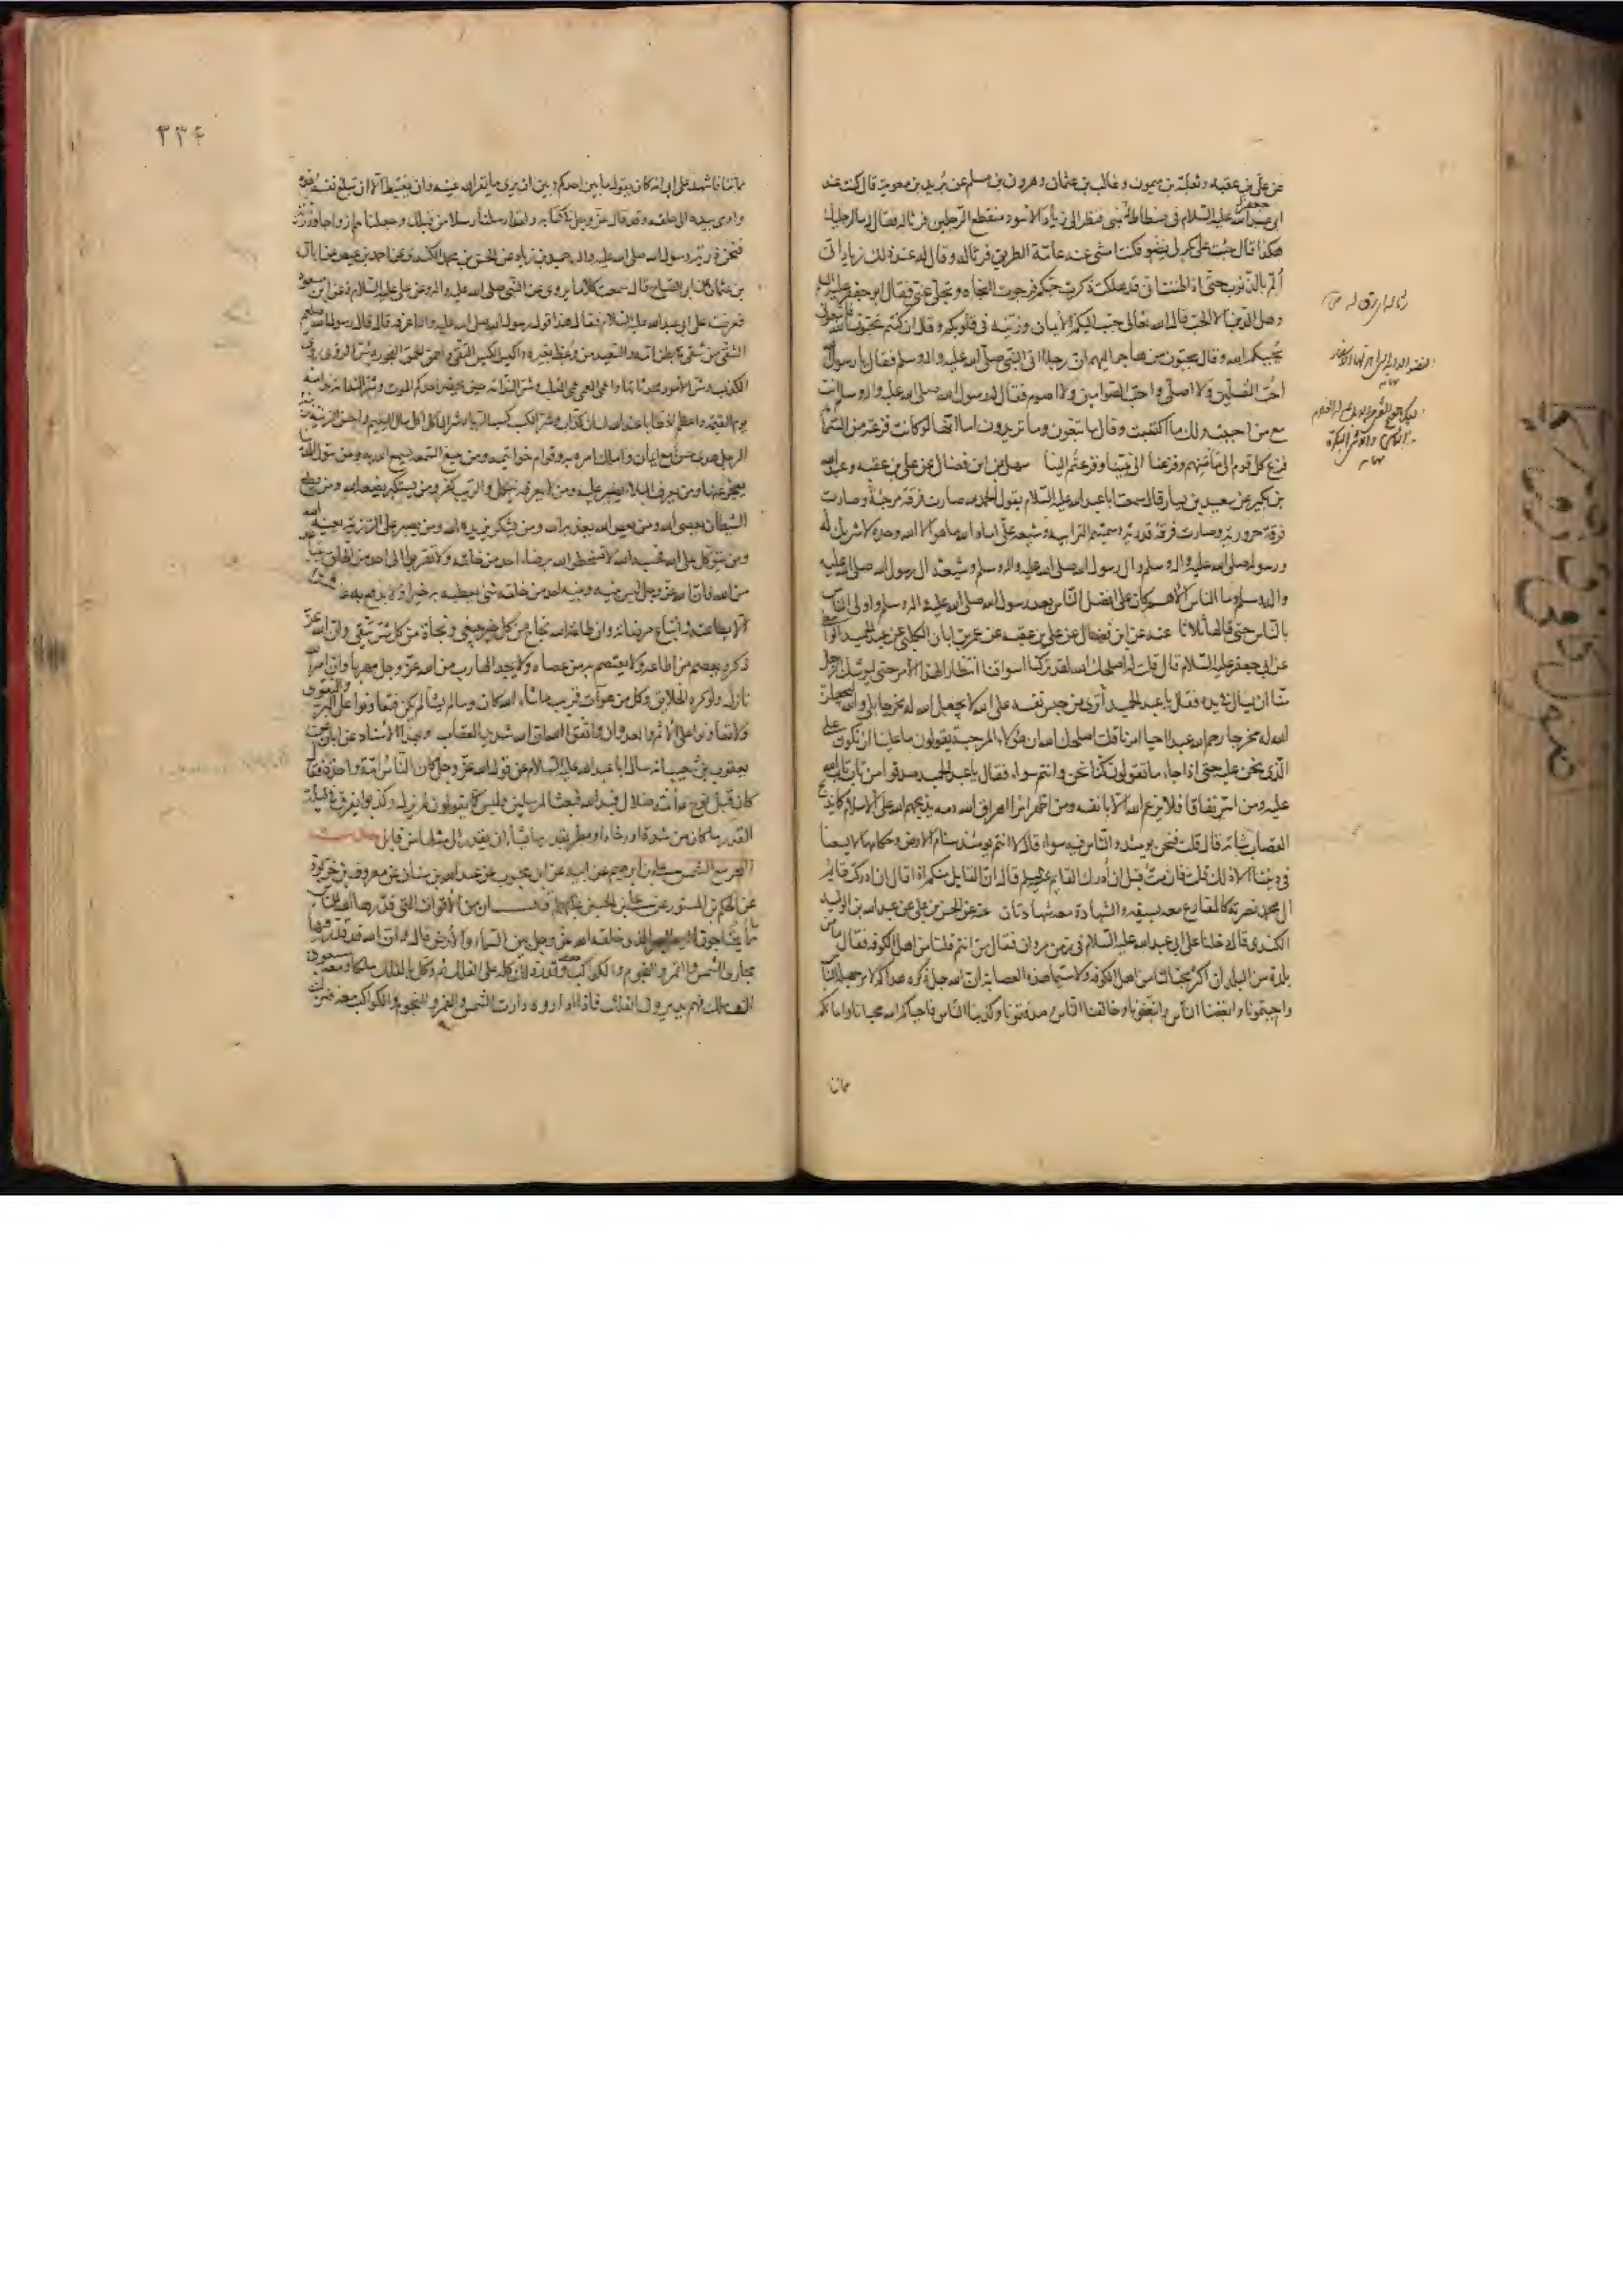 عن علي بن عقبه وثعلبة بن ميمون وغالب بن عثمان وهرون بن مسلم عن بريد بن معوية قال كنت عند
ابي جعفر عليه السلام في فسطاط له بمنى فنظر الى زياد الاسود منقطع الرجلين فرثا له فقال له ما لرجليك
هكذا قال جئت على بكر لي نضو فكنت امشي عنه عامة الطريق فرثا له وقال له عند ذلك زياد اني
الم بالذنوب حتى اذا ظننت اني قد هلكت ذكرت حبكم فرجوت النجاة وتجلى عني فقال ابو جعفر عليه السلام
وهل الدين الا الحب قال الله تعالى حبب اليكم الايمان وزينه في قلوبكم وقال ان كنتم تحبون الله فاتبعوني
يحببكم الله وقال يحبون من هاجر اليهم ان رجلا اتى النبي صلى الله عليه واله وسلم فقال يا رسول الله
احب المصلين ولا اصلي واحب الصوامين ولا اصوم فقال له رسول الله صلى الله عليه واله وسلم انت
مع من احببت ولك ما اكتسبت وقال ما تبغون وما تريدون اما انها لو كانت فزعة من السماء
فزع كل قوم الى مأمنهم وفزعنا الى نبينا وفزعتم الينا سهل عن ابن فضال عن علي بن عقبه وعبد الله
بن بكير عن سعيد بن يسار قال سمعت ابا عبد الله عليه السلام يقول الحمد لله صارت فرقة مرجئة وصارت
فرقة حرورية وصارت فرقة قدرية وسميتم الترابية وشيعة علي اما والله ما هو الا الله وحده لا شريك له
ورسوله صلى الله عليه واله وسلم وال رسول الله صلى الله عليه واله وسلم وشيعة ال رسول الله صلى الله عليه
واله وسلم وما الناس الا هم كان علي افضل الناس بعد رسول الله صلى الله عليه واله وسلم واولى الناس
بالناس حتى قالها ثلاثا عنه عن ابن فضال عن علي بن عقبه عن عمر بن ابان الكلبي عن عبد الحميد الواسطي
عن ابي جعفر عليه السلام قال قلت له اصلحك الله لقد تركنا اسواقنا انتظارا لهذا الامر حتى ليوشك الرجل
منا ان يسال في يده فقال يا عبد الحميد اترى من حبس نفسه على الله لا يجعل الله له مخرجا بلى والله ليجعلن
الله له مخرجا رحم الله عبدا احيا امرنا قلت اصلحك الله ان هؤلاء المرجئة يقولون ما علينا ان نكون على
الذي نحن عليه حتى اذا جاء ما تقولون كنا نحن وانتم سواء فقال يا عبد الحميد صدقوا من تاب تاب الله
عليه ومن اسر نفاقا فلا يرغم الله الا بانفه ومن اظهر امرنا اهراق الله دمه يذبحهم الله على الاسلام كما يذبح
القصاب شاته قال قلت فنحن يومئذ والناس فيه سواء قال لا انتم يومئذ سنام الارض وحكامها لا يسعنا
في ديننا الا ذلك قلت فان مت قبل ان ادرك القايم عليه السلام قال ان القايل منكم اذا قال ان ادركت قائم
ال محمد نصرته كالمقارع معه بسيفه والشهادة معه شهادتان عنه عن الحسن بن علي عن عبد الله بن الوليد
الكندي قال دخلنا على ابي عبد الله عليه السلام في زمن مروان فقال من انتم فقلنا من اهل الكوفة فقال ما من
بلدة من البلدان اكثر محبا لنا من اهل الكوفة ولا سيما هذه العصابة ان الله جل ذكره هداكم لامر جهله الناس
واحببتمونا وابغضنا الناس واتبعتمونا وخالفنا الناس وصدقتمونا وكذبنا الناس فاحياكم الله محيانا واماتكم
مماتنا
٣٣٤
مماتنا فاشهد على ابي انه كان يقول ما بين احدكم وبين ان يرى ما يقر الله عينه وان يغتبط الا ان تبلغ نفسه هذه
واوى بيده الى حلقه وقد قال عز وجل في كتابه ولقد ارسلنا رسلا من قبلك وجعلنا لهم ازواجا وذرية
فنحن ذرية رسول الله صلى الله عليه واله حميد بن زياد عن الحسن بن محمد الكندي عن احمد بن عديس عن ابان
بن عثمان عن ابي الصباح قال سمعت كلاما يروى عن النبي صلى الله عليه واله وعن علي عليه السلام وعن ابن مسعود
فعرضته على ابي عبد الله عليه السلام فقال هذا قول رسول الله صلى الله عليه واله اعرفه قال قال رسول الله صلعم
الشقي من شقي في بطن امه والسعيد من وعظ بغيره واكيس الكيس التقي واحمق الحمق الفجور وشر الروي روي
الكذب وشر الامور محدثاتها واعمى العمى عمى القلب وشر الندامة حين يحضر احدكم الموت وشر الندامة ندامة
يوم القيمة واعظم الخطايا عند الله لسان كذاب وشر الكسب كسب الربا وشر الماكل اكل مال اليتيم واحسن الزينة زينة
الرجل هدى حسن مع ايمان واملك امره به وقوام خواتيمه ومن يتبع السمعة يسمع الله به ومن يتول الدنيا
يعجز عنها ومن يعرف البلاء يصبر عليه ومن لا يعرفه ينكل والريب كفر ومن يستكبر يضعه الله ومن يطع
الشيطان يعصى الله ومن يعص الله يعذبه الله ومن يشكر يزيده الله ومن يصبر على الرزية يعينه الله
ومن يتوكل على الله فحسبه الله لا تسخطوا الله برضاء احد من خلقه ولا تقربوا الى احد من الخلق تتباعدوا
من الله فان الله عز وجل ليس بينه وبين احد من خلقه شئ يعطيه به خيرا ولا يدفع به عنه شرا
الا بطاعته واتباع مرضاته وان طاعة الله نجاح من كل خير يبتغى ونجاة من كل شر يتقى وان الله عز
ذكره يعصم من اطاعه ولا يعتصم به من عصاه ولا يجد الهارب من الله عز وجل مهربا وان امر الله
نازل ولو كره الخلايق وكل ما هو آت قريب ما شاء الله كان وما لم يشأ لم يكن فتعاونوا على البر والتقوى
ولا تعاونوا على الاثم والعدوان واتقوا الله ان الله شديد العقاب وبهذا الاسناد عن ابان عن
يعقوب بن شعيب انه سال ابا عبد الله عليه السلام عن قول الله عز وجل كان الناس امة واحدة فقال
كان قبل نوح امة ضلال فبدا لله فبعث المرسلين وليس كما يقولون لم يزل وكذبوا يفرق في ليلة
القدر ما كان من شدة او رخاء او مطر بقدر ما يشاء ان يقدر الى مثلها من قابل حديث
البحر مع الشمس علي بن ابراهيم عن ابيه عن ابن محبوب عن عبد الله بن سنان عن معروف بن خربوذ
عن الحكم بن المستور عن علي بن الحسين عليهما السلام قال ان من الاقوات التي قدرها الله للناس
مما يحتاجون اليه البحر الذي خلقه الله عز وجل بين السماء والارض قال وان الله قد قدر فيها
مجاري الشمس والقمر والنجوم والكواكب وقدر ذلك كله على الفلك ثم وكل بالفلك ملكا ومعه سبعون
الف ملك فهم يديرون الفلك فاذا اداروه دارت الشمس والقمر والنجوم والكواكب معه فنزلت